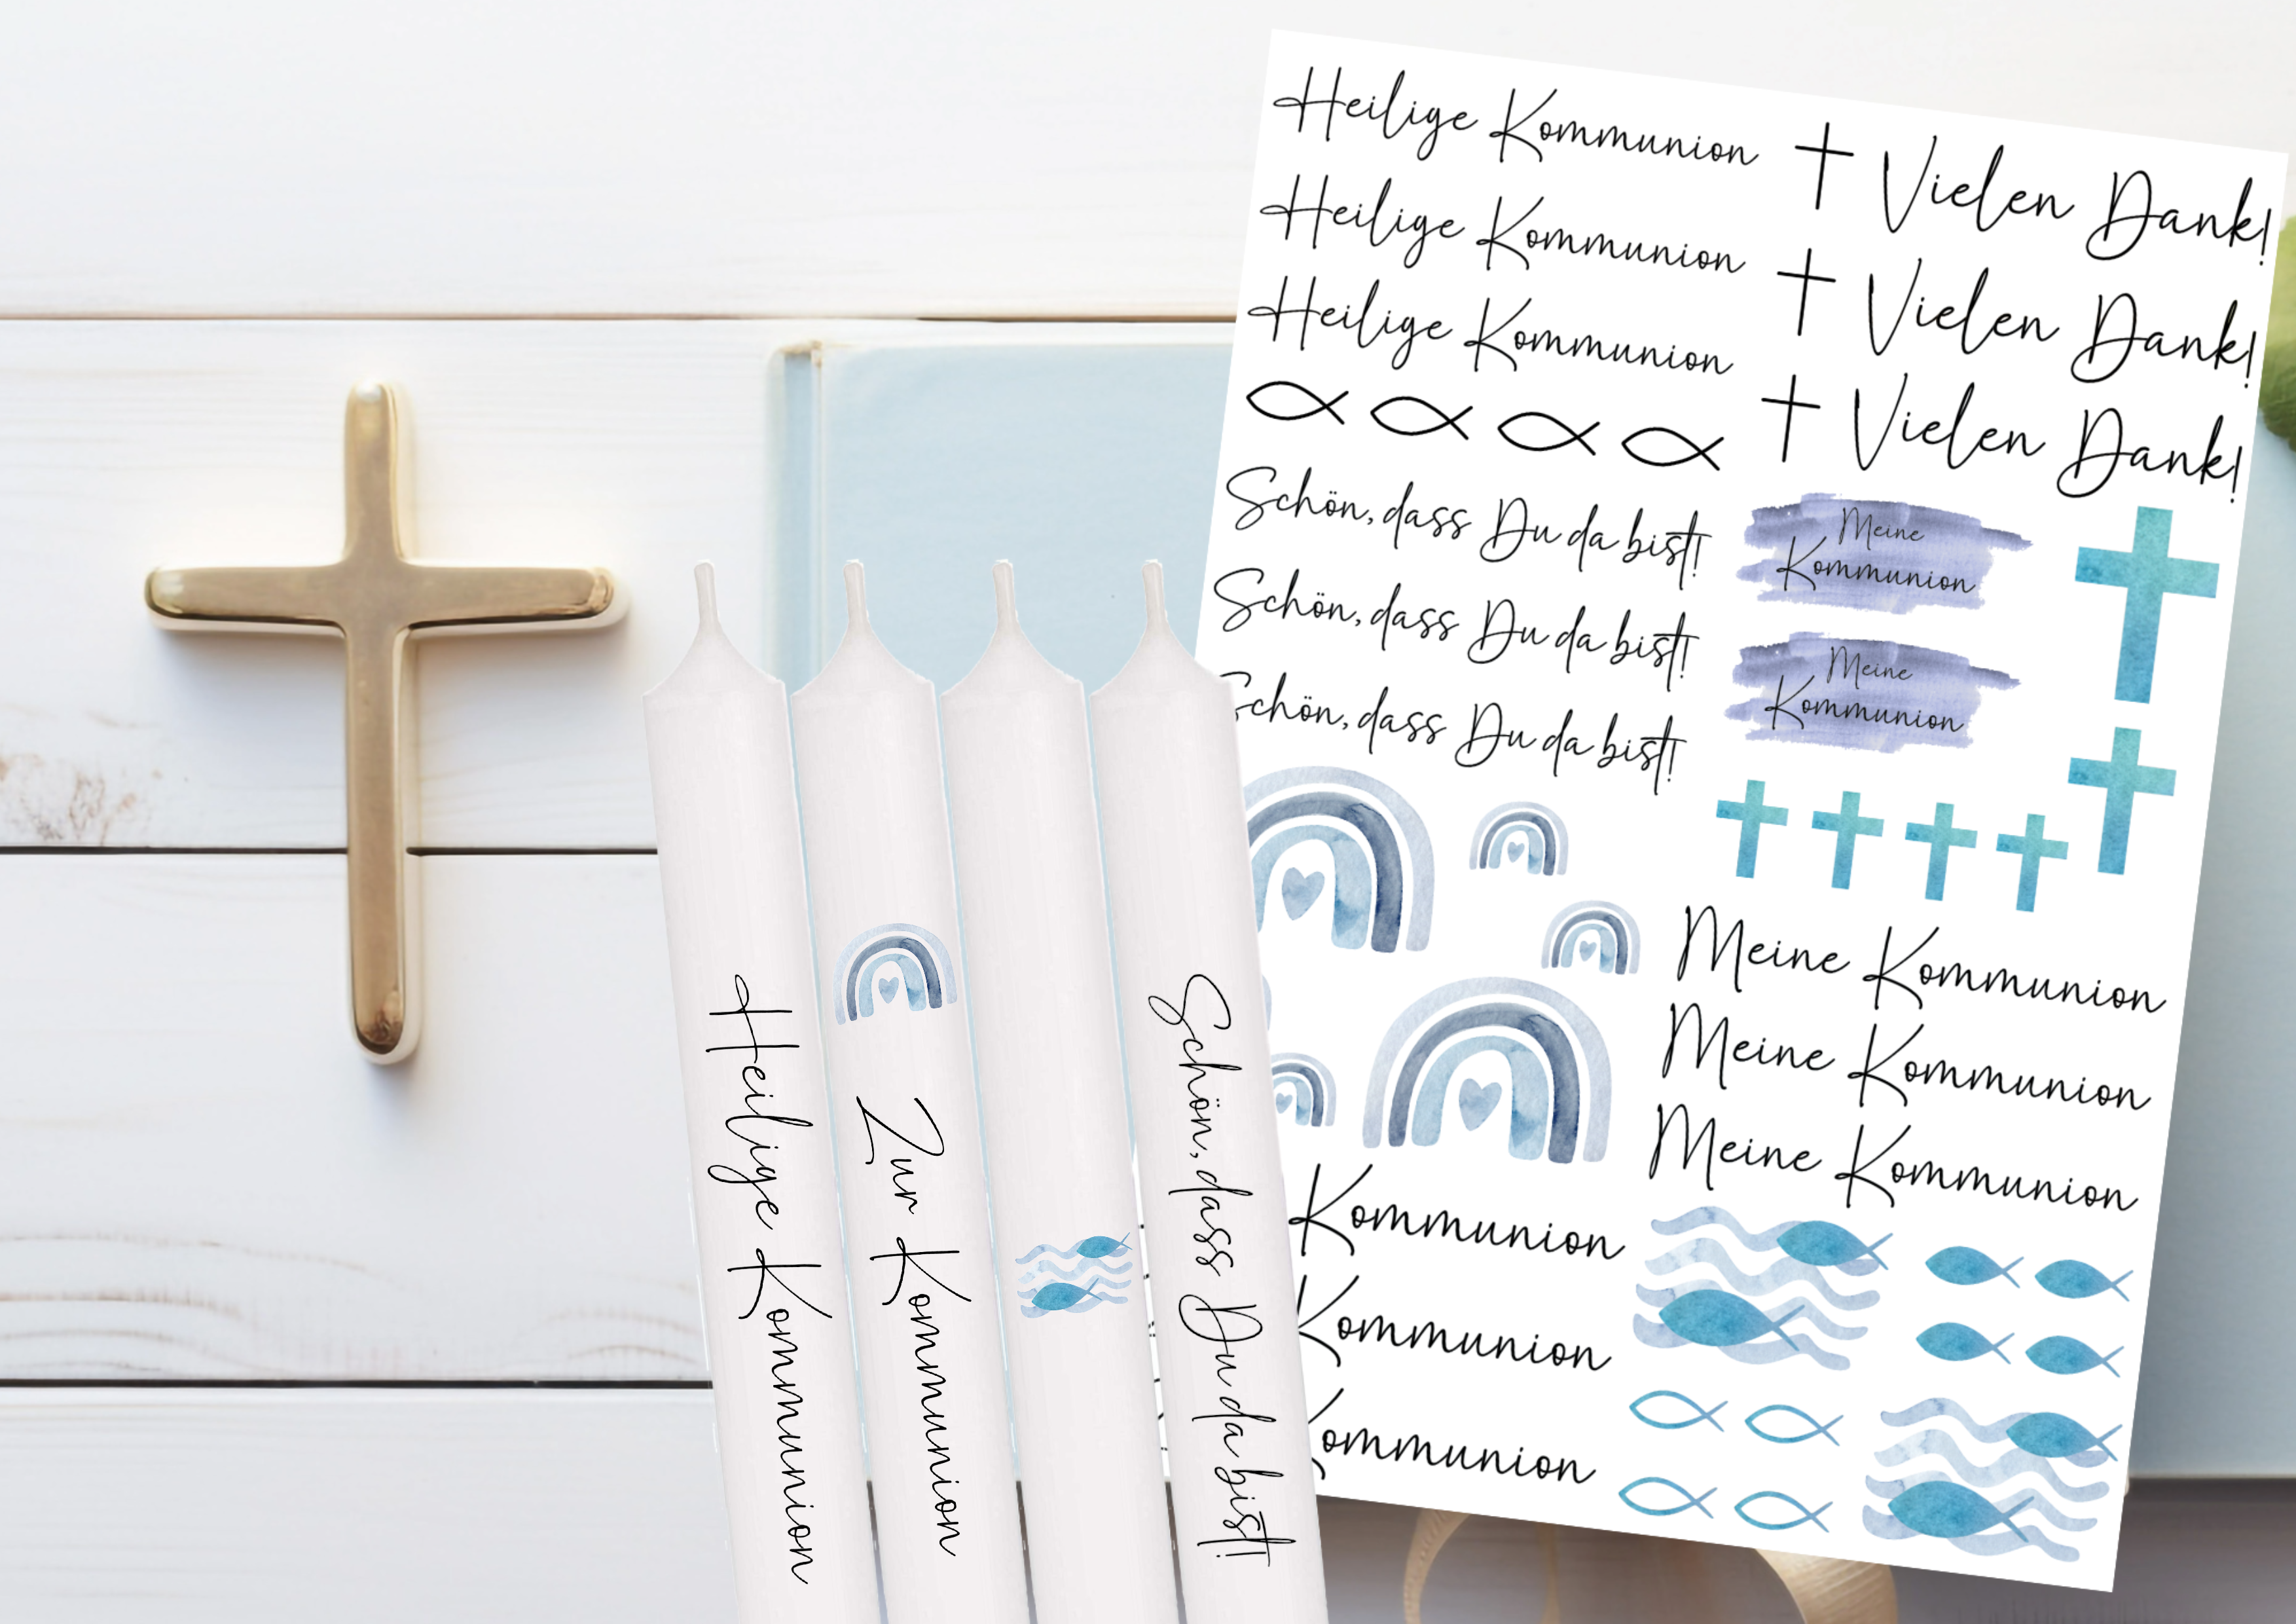 Heilige Kommunion
Heilige Kommunion
Heilige Kommunion
Vielen Dank!
Vielen Dank!
Vielen Dank!
Schön, dass Du da bist!
Schön, dass Du da bist!
Schön, dass Du da bist!
Meine
Kommunion
Meine
Kommunion
Meine Kommunion
Meine Kommunion
Meine Kommunion
Kommunion
Kommunion
Kommunion
Heilige Kommunion
Zur Kommunion
Schön, dass Du da bist!